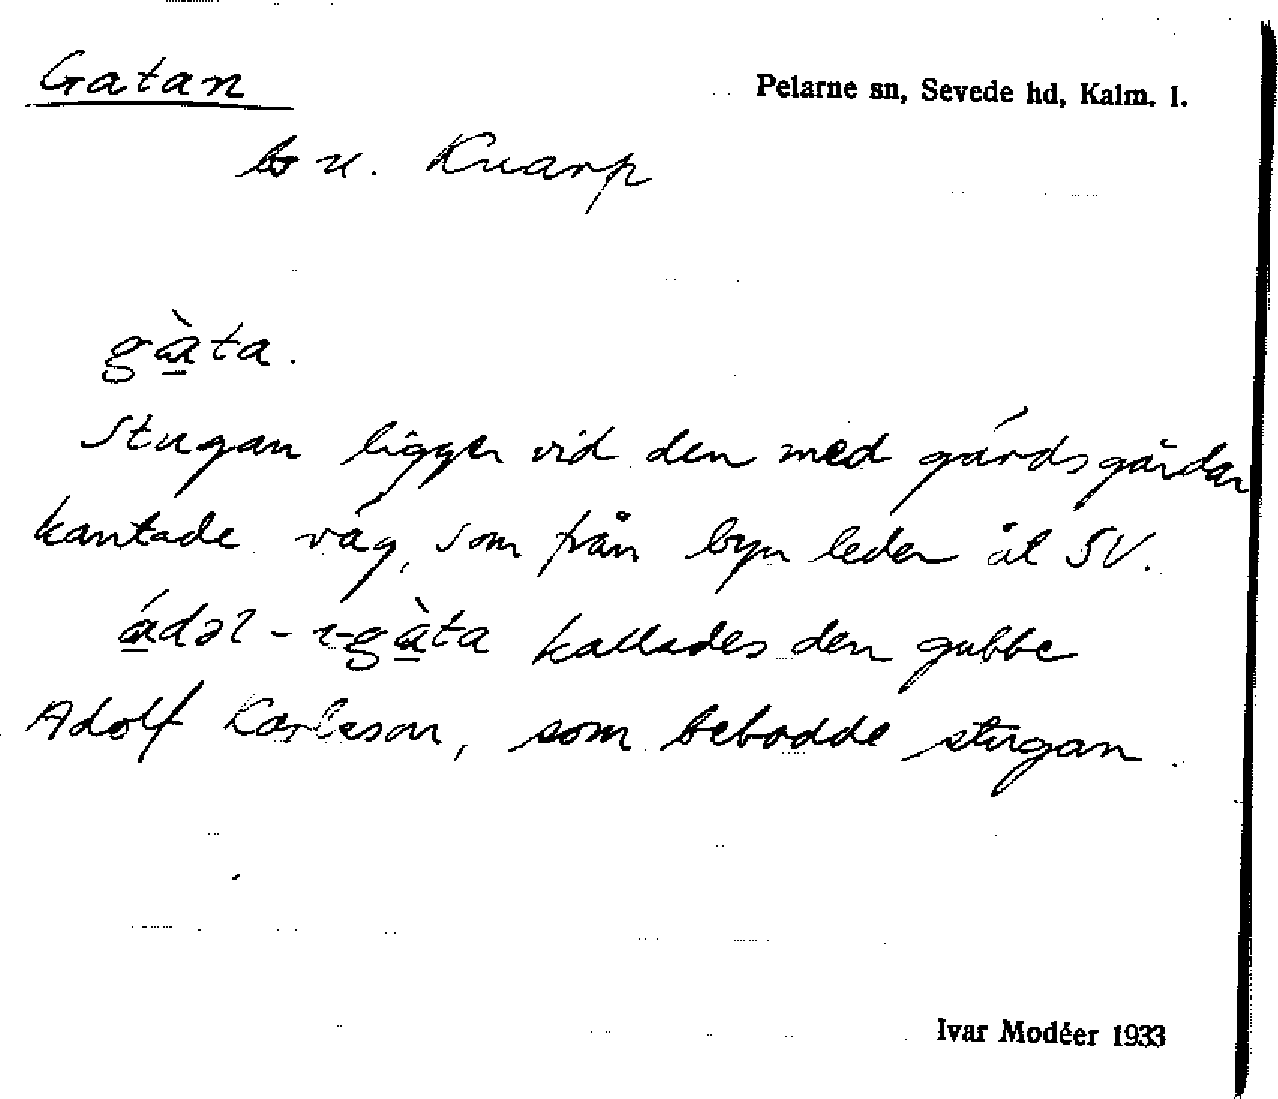 Gatan
Pelarne sn, Sevede hd, Kalm. l.
u. Knarp
gà̱ta.
Stugan ligger vid den med gärdsgårdar
kantade väg, som från byn leder åt SV.
á̱dəl-ɩ-gà̱ta kallades den gubbe
Adolf Karlsson, som bebodde stugan.
Ivar Modéer 1933